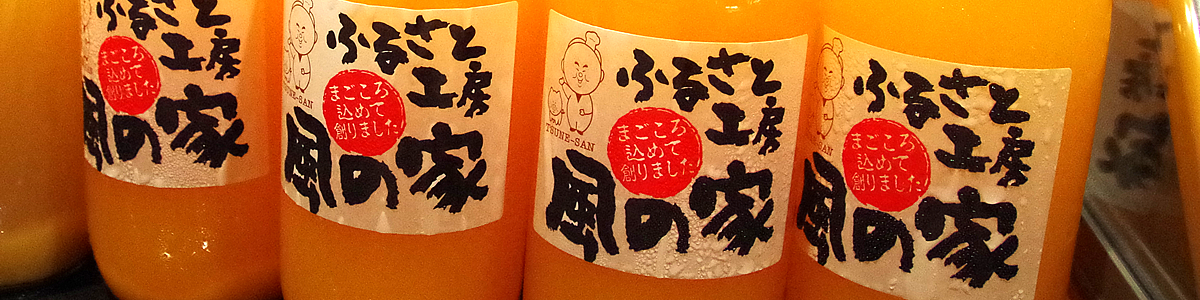 ふるさと
工房
まごころ
込めて
創りました
風の家
ふるさと
工房
まごころ
込めて
創りました
TSUNE-SAN
風の家
ふるさと
工房
まごころ
込めて
創りました
TSUNE-SAN
風の家
ふるさと
工房
まごころ
込めて
創りました
風の家